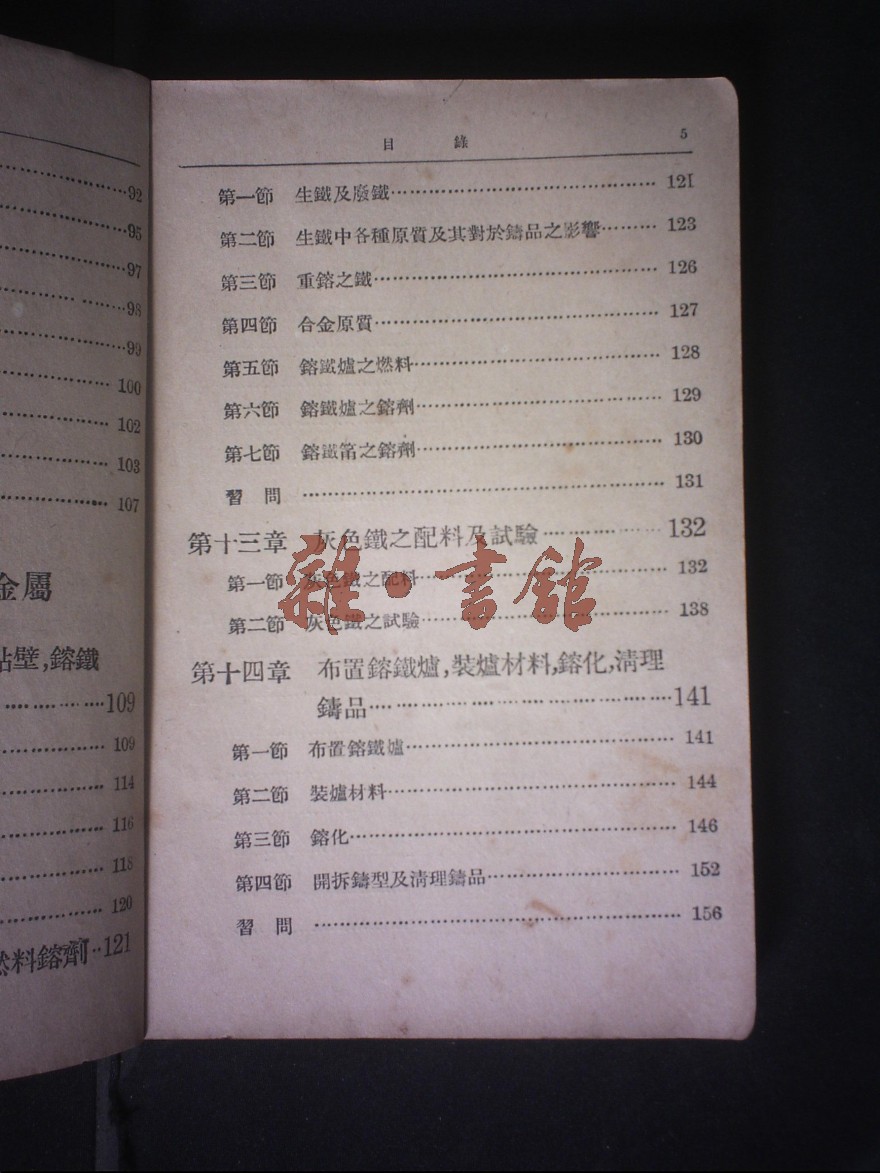 92
95
97
98
99
100
102
103
107
金屬
壁,鎔鐵
109
109
114
116
118
120
料鎔劑 121
目 錄 5
第一節 生鐵及廢鐵 121
第二節 生鐵中各種原質及其對於鑄品之影響 123
第三節 重鎔之鐵 126
第四節 合金原質 127
第五節 鎔鐵爐之燃料 128
第六節 鎔鐵爐之鎔劑 129
第七節 鎔鐵筩之鎔劑 130
習 問 131
第十三章 灰色鐵之配料及試驗 132
第一節 灰色鐵之配料 132
第二節 灰色鐵之試驗 138
第十四章 布置鎔鐵爐,裝爐材料,鎔化,淸理
鑄品 141
第一節 布置鎔鐵爐 141
第二節 裝爐材料 144
第三節 鎔化 146
第四節 開拆鑄型及淸理鑄品 152
習 問 156
雜·書館